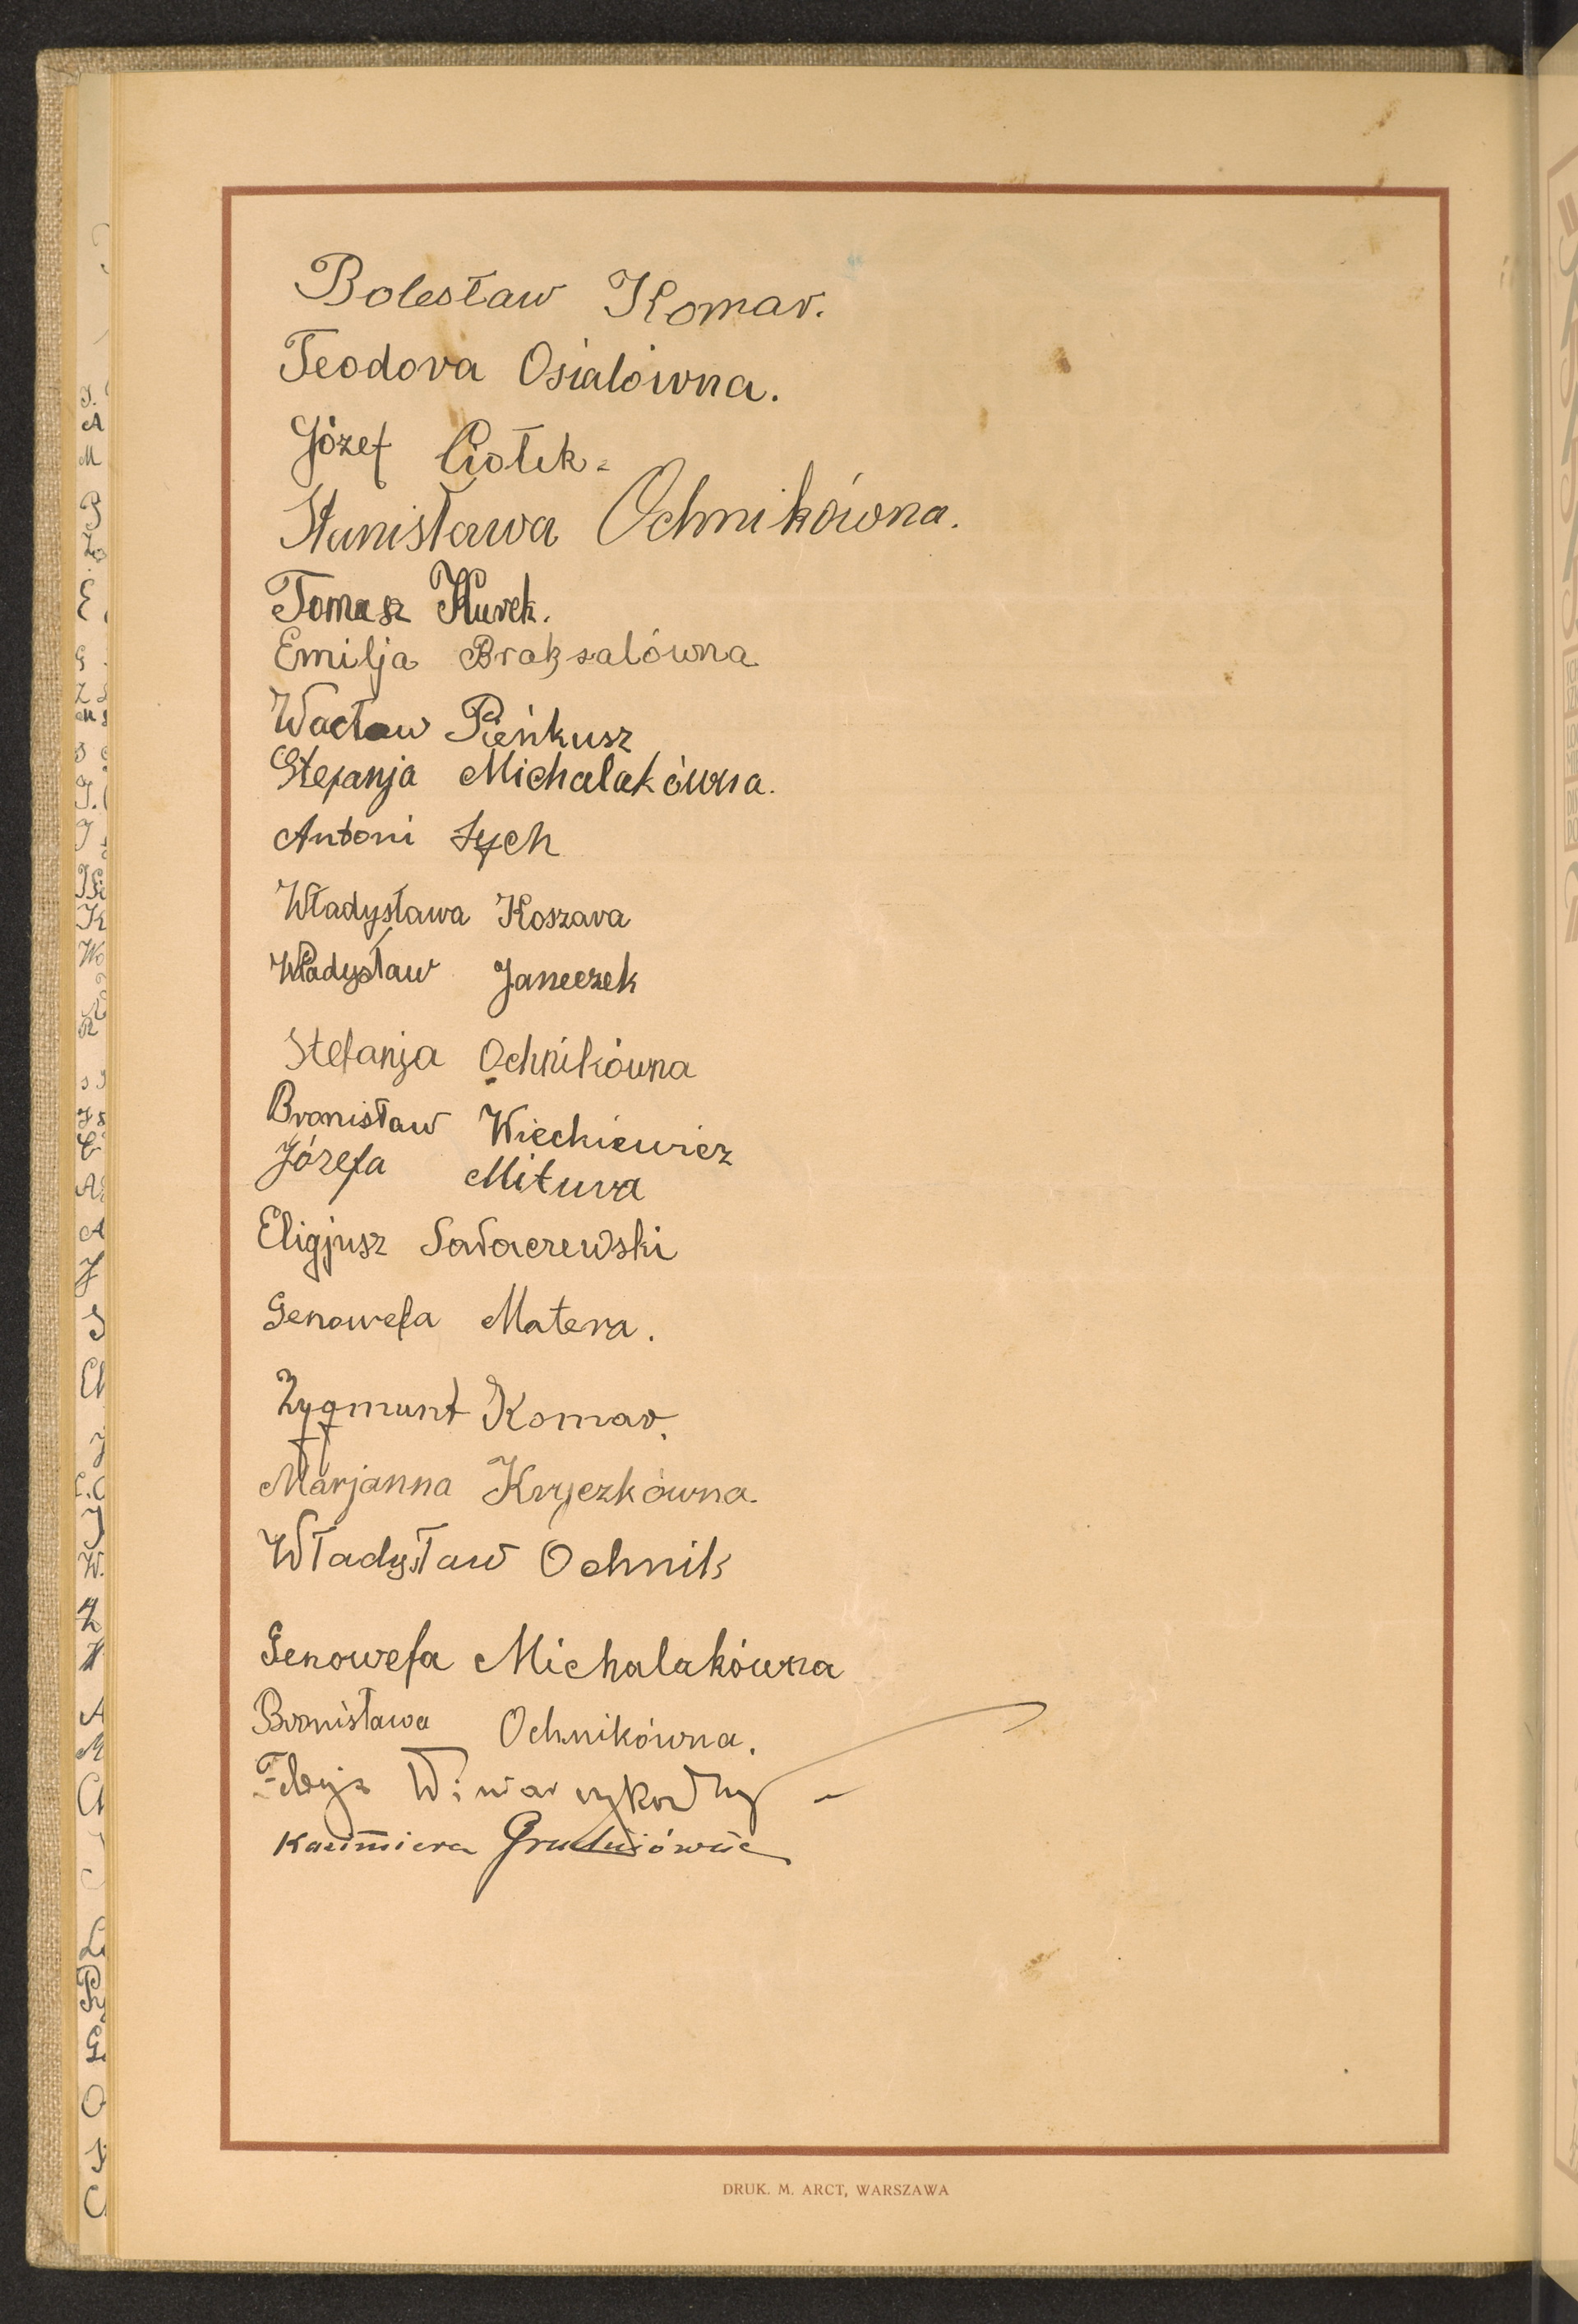 Bolesław Komar.
Teodora Osialówna.
Józef Ciołek.
Stanisława Ochnikówna.
Tomasz Kurek.
Emilja Braksalówna
Wacław Pieńkusz
Stefanja Michalakówna.
Antoni Zych
Władysława Koszara
Władysław Janeczek
Stefanja Ochnikówna
Bronisław Wieckiewicz
Józefa Mitura
Eligjusz Sadaczewski
Genowefa Matera.
Zygmunt Komar.
Marjanna Kryczkówna.
Władysław Ochnik
Genowefa Michalakówna
Bronisława Ochnikówna.
Kazimiera
DRUK. M. ARCT, WARSZAWA